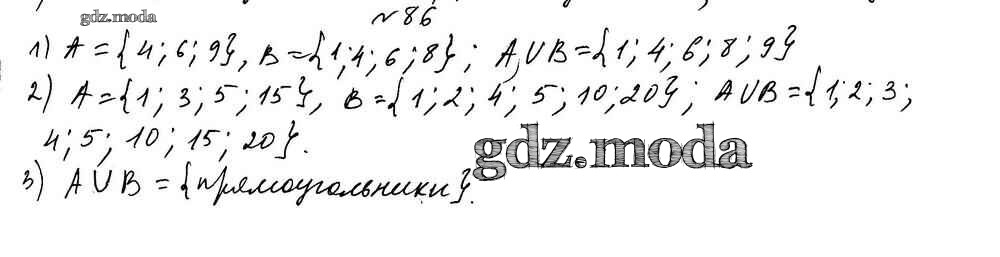 №86
gdz.moda
1) A={4;6;9}, B={1;4;6;8}; A∪B={1;4;6;8;9}
2) A={1;3;5;15}, B={1;2;4;5;10;20}; A∪B={1;2;3;
4;5;10;15;20}.
gdz.moda
3) A∪B={прямоугольники}.